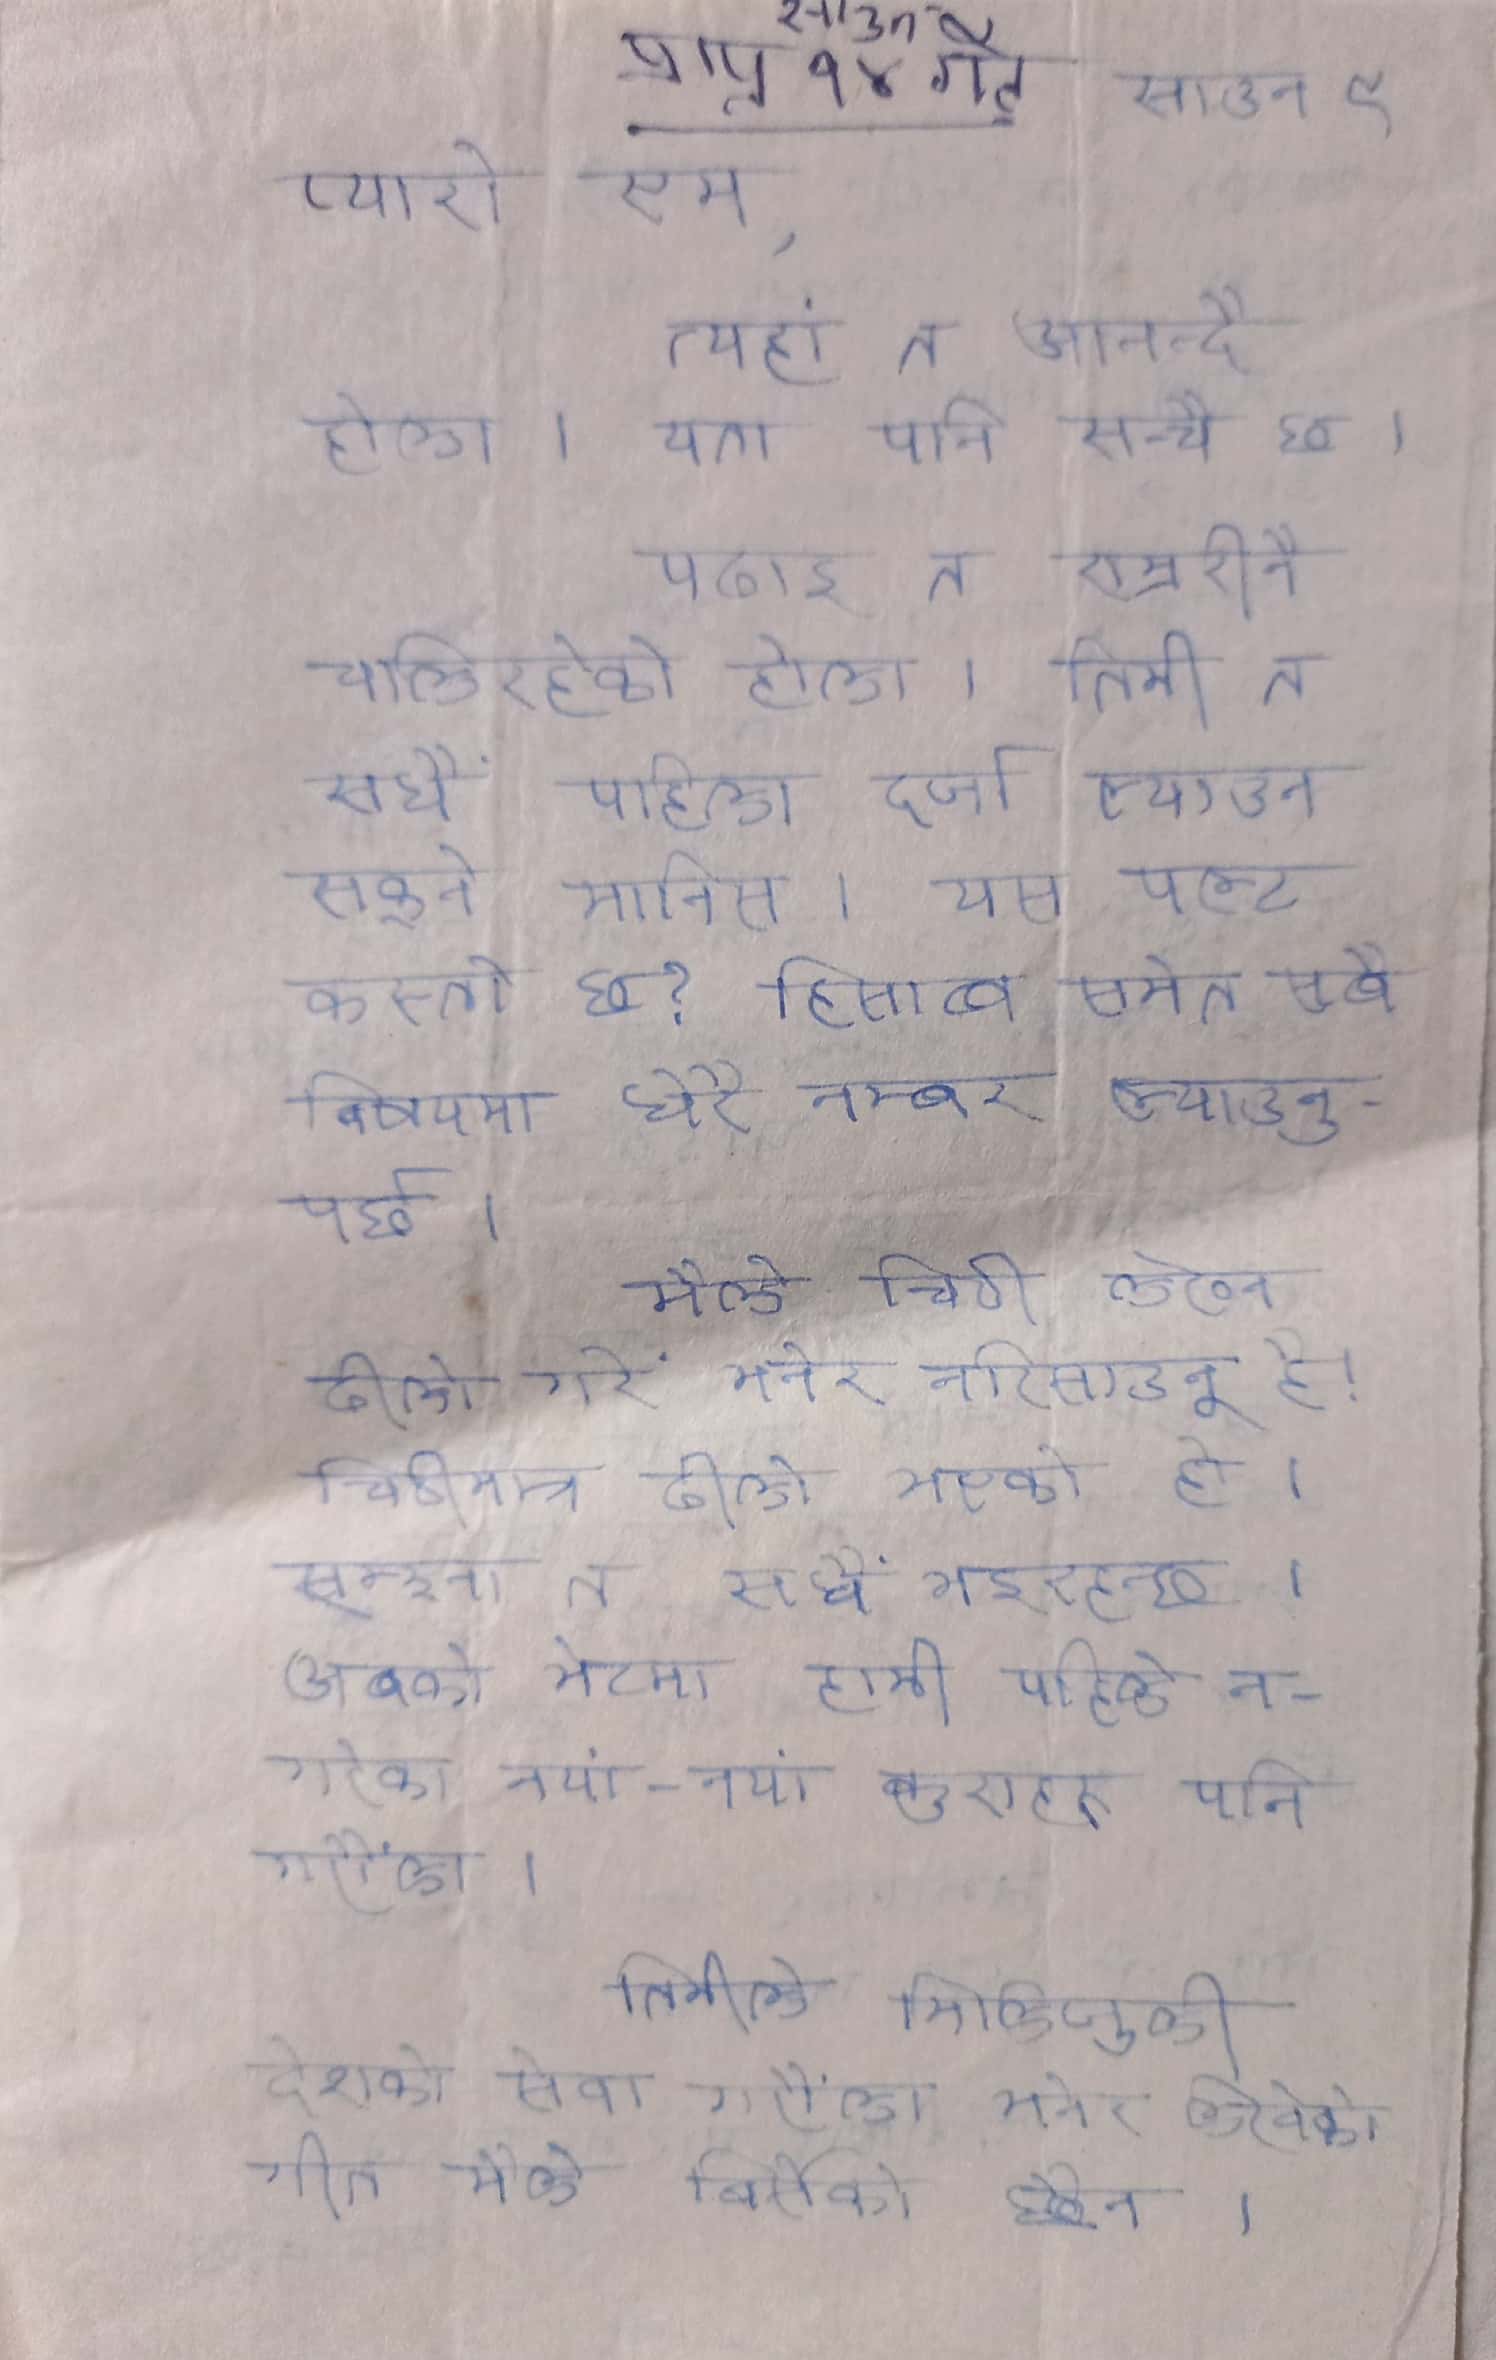 साउन
प्राप्त १४ गते साउन ९
प्यारो राम,
त्यहां त आनन्दै
होला । यता पनि सन्चै छ ।
पढाइ त राम्ररीनै
चालिरहेको होला । तिमी त
सधैं पहिला दर्जा ल्याउन
सक्ने मानिस । यस पल्ट
कस्तो छ? हिसाब समेत सबै
विषयमा धेरै नम्बर ल्याउनु-
पर्छ ।
मैले चिठी लेख्न
ढीलो गरें भनेर नरिसाउनू है!
चिठीमात्र ढीलो भएको हो ।
सम्झना त सधैं भइरहन्छ ।
अबको भेटमा हामी पहिले न-
गरेका नयां-नयां कुराहरू पनि
गरौंला ।
तिमीले मिलिजुली
देशको सेवा गरौंला भनेर लेखेको
गीत मैले बिर्सेको छैन ।